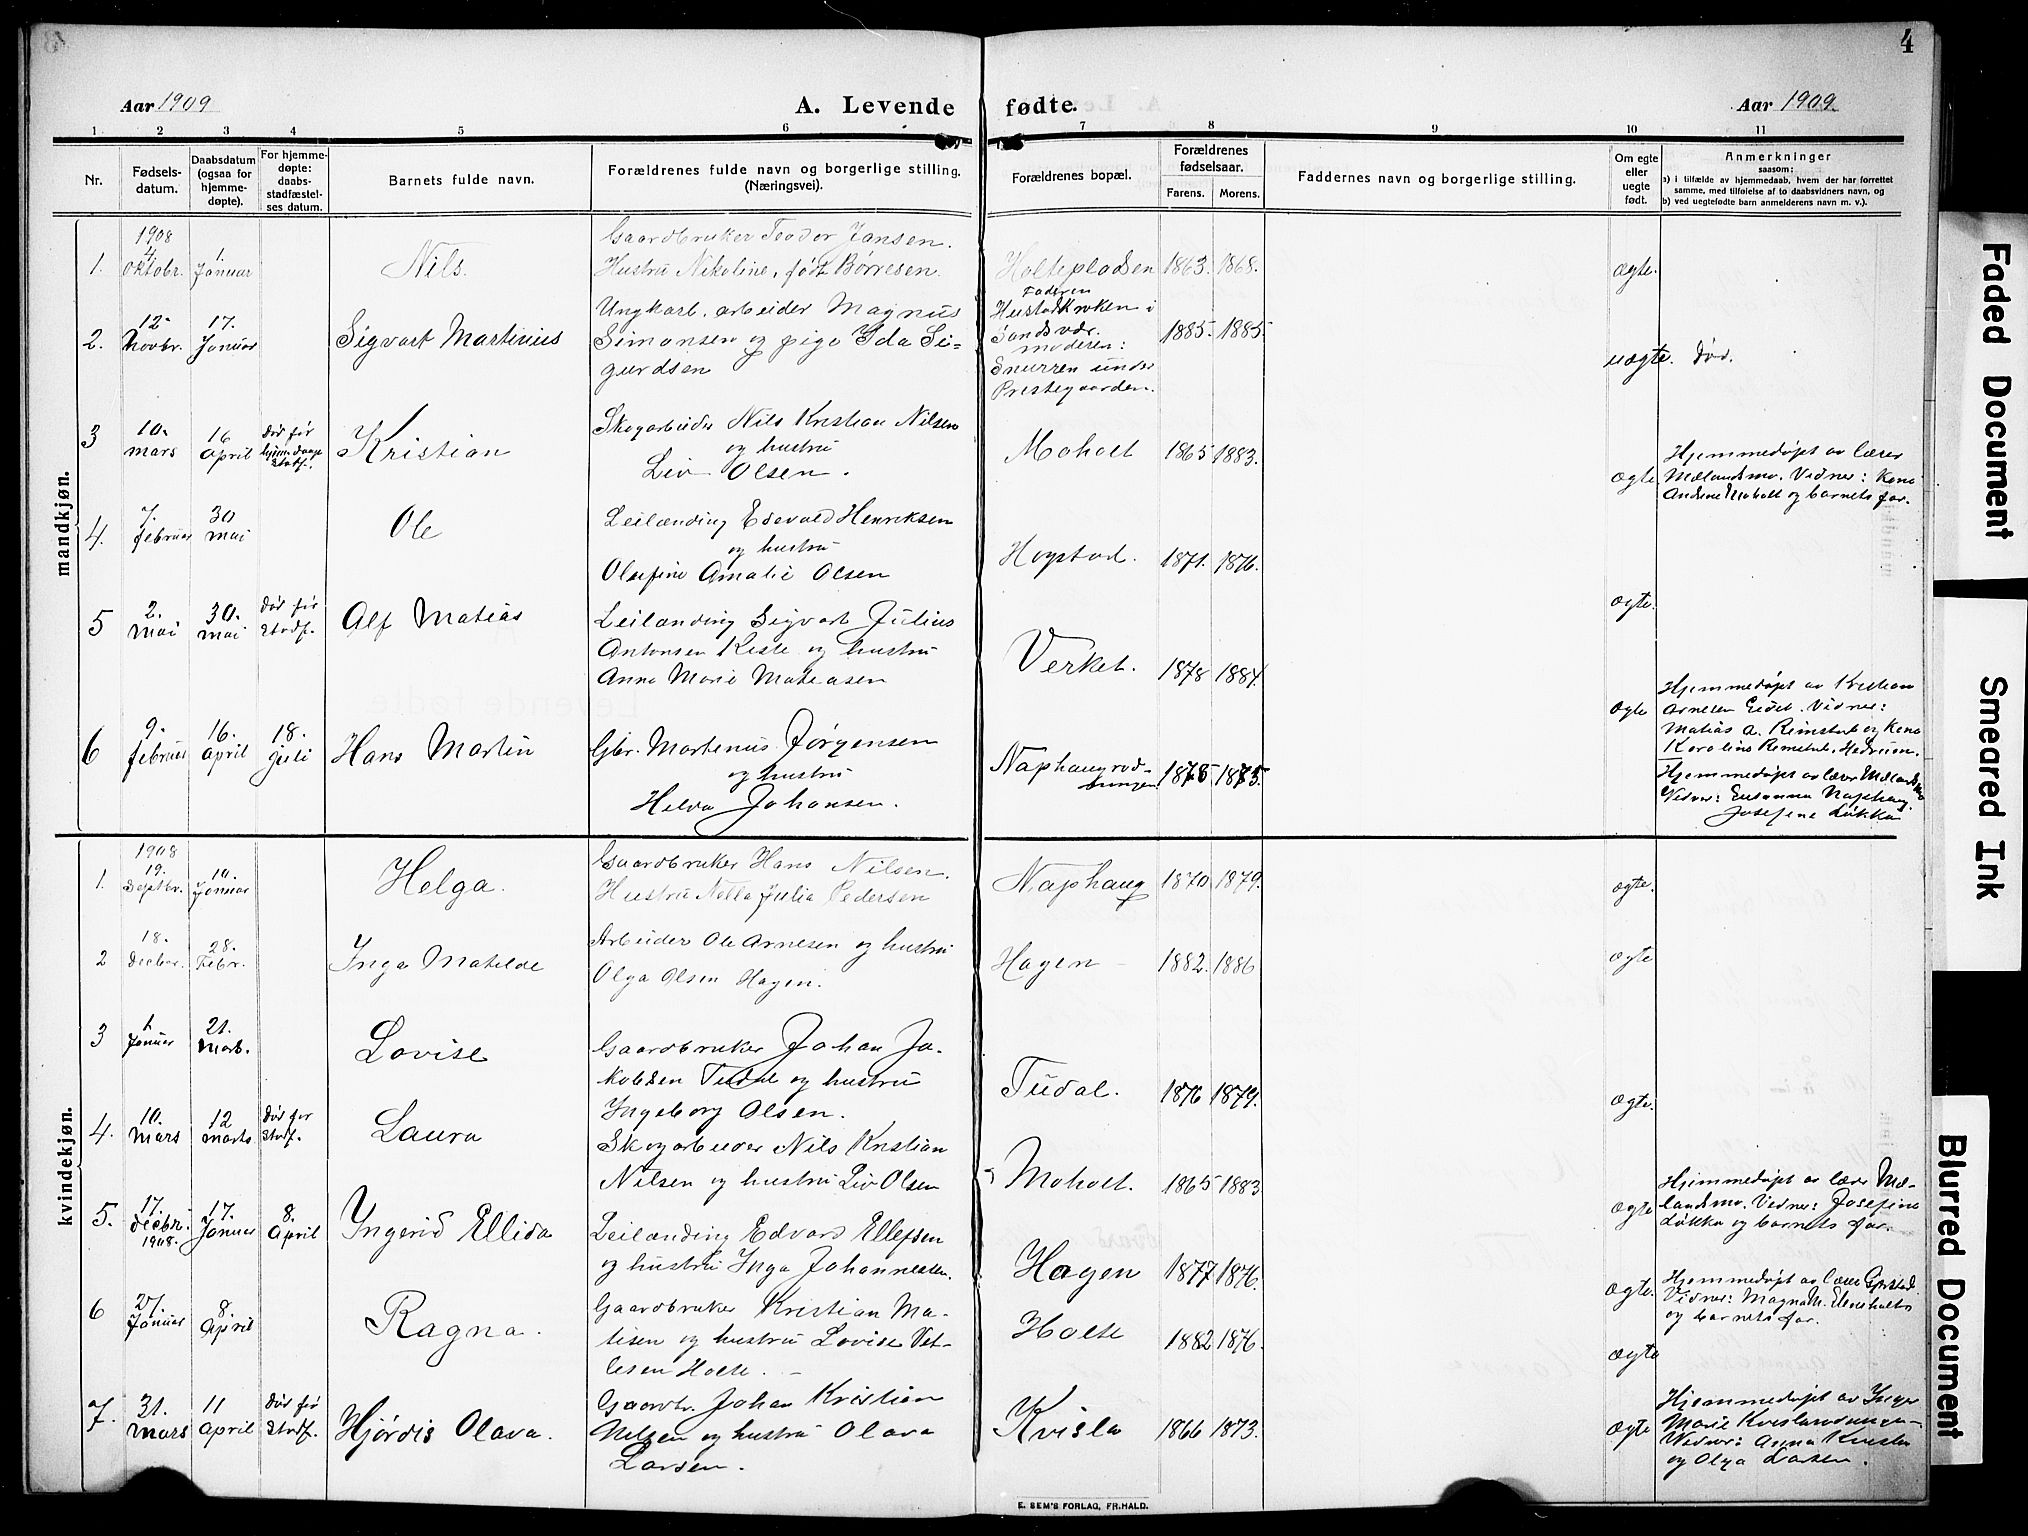 4
Aar 1909
A. Levende fødte.
Aar 1909
1 2 3 4 5 6 7 8 9 10 11
Nr.
Fødsels-
datum.
Daabsdatum
(ogsaa for
hjemme-
døpte).
For hjemme-
døpte:
daabs-
stadfæstel-
ses datum.
Barnets fulde navn.
Forældrenes fulde navn og borgerlige stilling.
(Næringsvei).
Forældrenes bopæl.
Forældrenes
fødselsaar.
Farens. Morens.
Faddernes navn og borgerlige stilling.
Om egte
eller
uegte
født.
Anmerkninger
saasom:
a) i tilfælde av hjemmedaab, hvem der har forrettet
samme, med tilføielse af to daabsvidners navn, og
b) ved uegtefødte barn anmelderens navn m. v.).
mandkjøn.
1908
1. 4 Oktobr. 1. Januar Nils.
Gaardbruker Teodor Jansen.
Hustru Nikoline, født Børresen.
Holtepladsen 1863. 1868. ægte.
2. 12. Novbr. 17. Januar Sigvart Martinius
Ungkarl, arbeider Magnus
Simonsen og pige Ida Si-
gurdsen
Faderen
Hustadkroken i
Sandsvær.
moderen:
Snurren under
Prestegaarden.
1885. 1885. uægte. Død.
3 10. mars 16 April Død før hjem.daaps Stadf. Kristian
Skogarbeider Nils Kristian Nilsen
og hustru
Liv Olsen.
Moholt 1865 1883. ægte
Hjemmedøpt av lærer
Mælandsmo. Vidner:
Moholt og barnets far.
4. 7. februar 30 mai Ole
Leilænding Edevald Henriksen
og hustru
Olefine Amalie Olsen
Hogstad. 1871. 1876. ægte.
5 2. Mai 30. mai Død før Stadf. Alf Matias
Leilænding Sigvart Julius
Antonsen og hustru
Anna Marie Matiasen
Verket. 1878 1884. ægte
Hjemmedøpt av Kristian
Arnesen Eidet. Vidner:
Matias A. Rimstad og
Rimstad, Hedrum.
6 9. februar 16. April 18. juli Hans Martin
Gbr. Martinus Jørgensen
og hustru
Helva Johansen.
1875 1875.
Hjemmedøpt av lærer Mælandsmo
Vidner: Susanna Naphaug.
Josefine Løkka
kvindekjøn.
1908
1. 19. Septbr. 10. Januar Helga.
Gaardbruker Hans Nilsen.
Hustru Julia Pedersen
Naphaug 1870 1879. ægte.
2 18. Decbr. 28. Febr. Inga Matilde
Arbeider Ole Arnesen og hustru
Olga Olsen Hagen.
Hagen 1882. 1886 ægte
3 1. Januar 21. Mars. Lovise
Gaardbruker Johan Ja-
kobsen Tudal og hustru
Ingeborg Olsen.
Tudal. 1876 1879. ægte.
4. 10. Mars 12 marts Død før Stadf. Laura
Skogarbeider Nils Kristian
Nilsen og hustru Liv Olsen
Moholt. 1865 1883 ægte
Hjemmedøpt av lærer Mæ-
landsmo. Vidner: Josefine
Løkka og barnets far.
5. 17. Decbr. 1908. 17. Januar 8. April Ingerid Ellida
Leilænding Edvard Ellefsen
og hustru Inga Johannesen.
Hagen 1877 1876. ægte.
Hjemmedøpt av lærer
Vidner: Magna M.
og barnets far.
6 27. Januar 8. April Ragna.
Gaardbruker Kristian Ma-
tisen og hustru Lovise Vet-
lesen Holte.
Holte 1882 1876. ægte
7. 31. Mars 11 April Død før Stadf. Hjørdis Olava.
Gaardbr. Johan Kristian
Nilsen og hustru Olava
Larsen.
Kvisla 1866 1873. ægte
Hjemmedøpt av Inger
Marie
Vidner: Anna
og Olga Larsen.
E. SEM'S FORLAG, FR.HALD.
Faded Document
Smeared Ink
Blurred Document